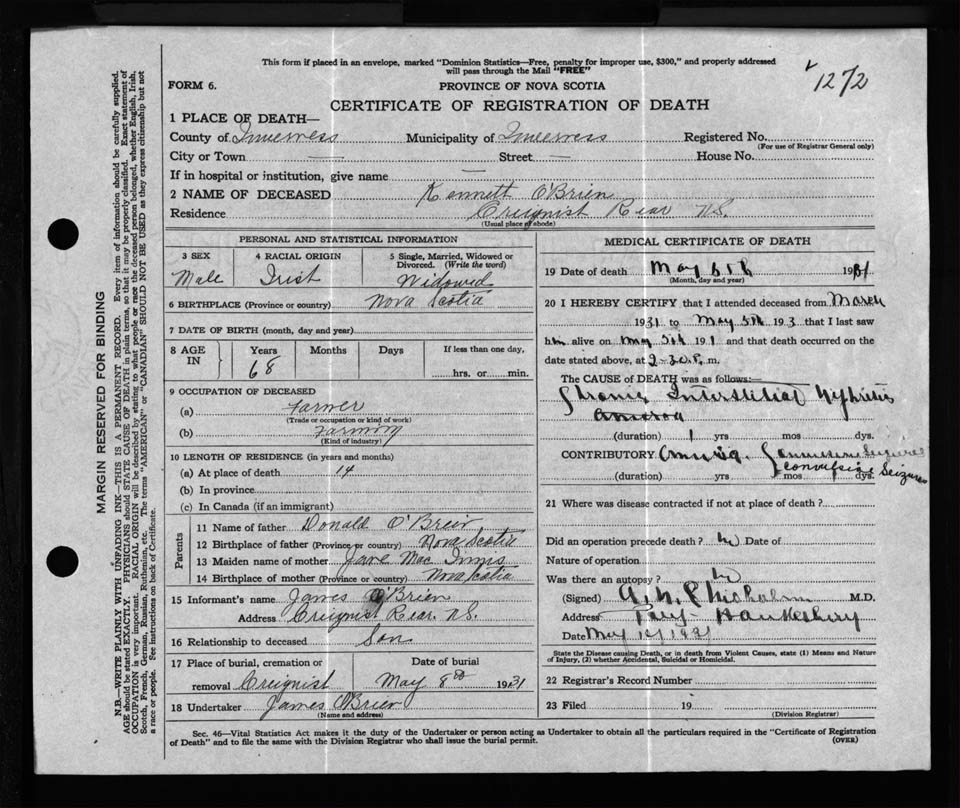 This form if placed in an envelope, marked "Dominion Statistics—Free, penalty for improper use, $300," and properly addressed
will pass through the Mail "FREE"
1272
FORM 6.
PROVINCE OF NOVA SCOTIA
CERTIFICATE OF REGISTRATION OF DEATH
1 PLACE OF DEATH—
County of Inverness Municipality of Inverness Registered No.
(For use of Registrar General only)
City or Town — Street — House No.
If in hospital or institution, give name —
2 NAME OF DECEASED Kennett O'Brien
Residence Creignist Rear N.S.
(Usual place of abode)
PERSONAL AND STATISTICAL INFORMATION
3 SEX 4 RACIAL ORIGIN 5 Single, Married, Widowed or Divorced. (Write the word)
Male Irish Widowed
6 BIRTHPLACE (Province or country) Nova Scotia
7 DATE OF BIRTH (month, day and year)
8 AGE IN Years Months Days If less than one day,
68 hrs. or min.
9 OCCUPATION OF DECEASED
(a) Farmer
(Trade or occupation or kind of work)
(b) Farming
(Kind of industry)
10 LENGTH OF RESIDENCE (in years and months)
(a) At place of death 14
(b) In province
(c) In Canada (if an immigrant)
Parents
11 Name of father Donald O'Brien
12 Birthplace of father (Province or country) Nova Scotia
13 Maiden name of mother Jane Mac Innis
14 Birthplace of mother (Province or country) Nova Scotia
15 Informant's name James O'Brien
Address Creignist Rear. N.S.
16 Relationship to deceased Son
17 Place of burial, cremation or removal Creignist
Date of burial
May 8th 1931
18 Undertaker James O'Brien
(Name and address)
MEDICAL CERTIFICATE OF DEATH
19 Date of death May 6th 1931
(Month, day and year)
20 I HEREBY CERTIFY that I attended deceased from March
1931 to May 5th 193 that I last saw
him alive on May 5th 1931 and that death occurred on the
date stated above, at 2-30 P. m.
The CAUSE OF DEATH was as follows:—
Chronic Interstitial Nephritis
(duration) 1 yrs mos dys.
CONTRIBUTORY Convulsive Seizures
(duration) yrs mos dys.
21 Where was disease contracted if not at place of death?
Did an operation precede death? No Date of
Nature of operation
Was there an autopsy? No
(Signed) M.D.
Address Port Hawkesbury
Date May 1931
State the Disease causing Death, or in death from Violent Causes, state (1) Means and
Nature of Injury, (2) whether Accidental, Suicidal or Homicidal.
22 Registrar's Record Number
23 Filed 19
(Division Registrar)
Sec. 46—Vital Statistics Act makes it the duty of the Undertaker or person acting as Undertaker to obtain all the particulars required in the "Certificate of Registration
of Death" and to file the same with the Division Registrar who shall issue the burial permit.
(OVER)
MARGIN RESERVED FOR BINDING
N.B.—WRITE PLAINLY WITH UNFADING INK—THIS IS A PERMANENT RECORD. Every item of information should be carefully supplied.
AGE should be stated EXACTLY. PHYSICIANS should STATE CAUSE OF DEATH in plain terms, so that it may be properly classified. Exact statement of
OCCUPATION is very important. RACIAL ORIGIN will be described by stating to what people or race the deceased person belonged, whether English, Irish,
Scotch, French, German, Russian, Ruthenian, etc. The terms "AMERICAN" or "CANADIAN" SHOULD NOT BE USED as they express citizenship but not
a race or people. See instructions on back of Certificate.